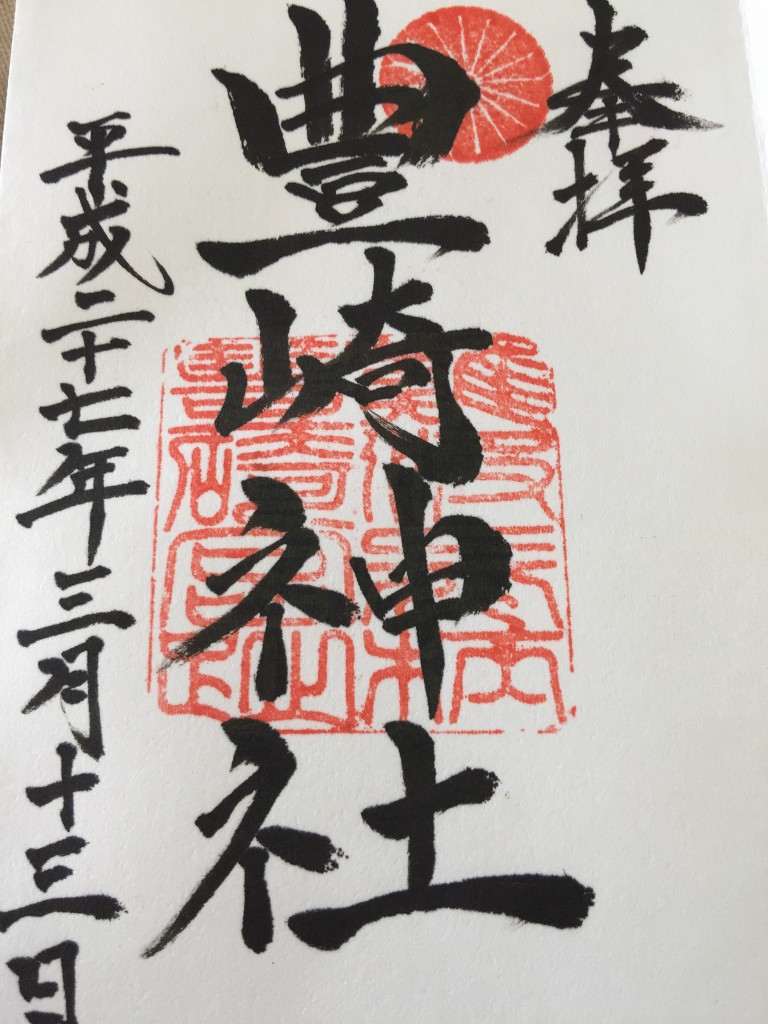 奉拝
豊崎神社
平成二十七年三月十三日